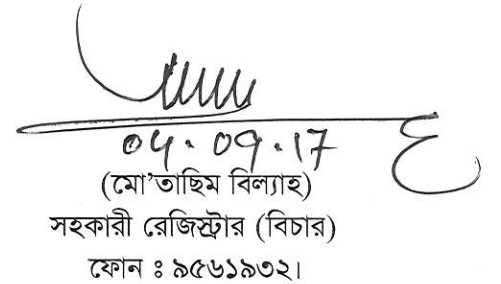 04.09.17
(মো'তাছিম বিল্যাহ)
সহকারী রেজিস্ট্রার (বিচার)
ফোন ঃ ৯৫৬১৯৩২।